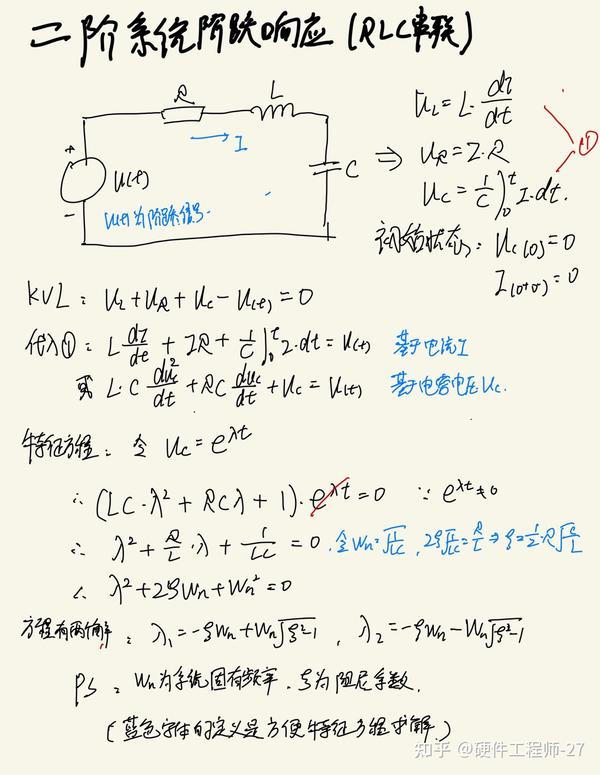 二阶系统阶跃响应(RLC串联)
R
L
I
C
+
-
U(t)
U(t)为阶跃信号.
⇒
U_L=L·dI/dt
U_R=I·R
U_C=1/C∫₀ᵗI·dt.
①
初始状态: U_C(0)=0
I(0+)=0
KVL: U_L+U_R+U_C-U(t)=0
代入①: L dI/dt + IR + 1/C∫₀ᵗI·dt=U(t) 基于电流I
或 L·C dU_C²/dt + RC dU_C/dt + U_C = U(t) 基于电容电压U_C.
特征方程: 令 U_C=e^λt
∴ (LC·λ²+RCλ+1)·e^λt=0 ∵ e^λt≠0
∴ λ²+R/L·λ+1/LC=0. 令Wn=√1/LC, 2ξ√1/LC=R/L⇒ξ=1/2·R√C/L
∴ λ²+2ξWn+Wn²=0
方程有两个解: λ₁=-ξWn+Wn√ξ²-1, λ₂=-ξWn-Wn√ξ²-1
PS: Wn为系统固有频率, ξ为阻尼系数.
(蓝色字体的定义是方便特征方程求解.)
知乎 @硬件工程师-27